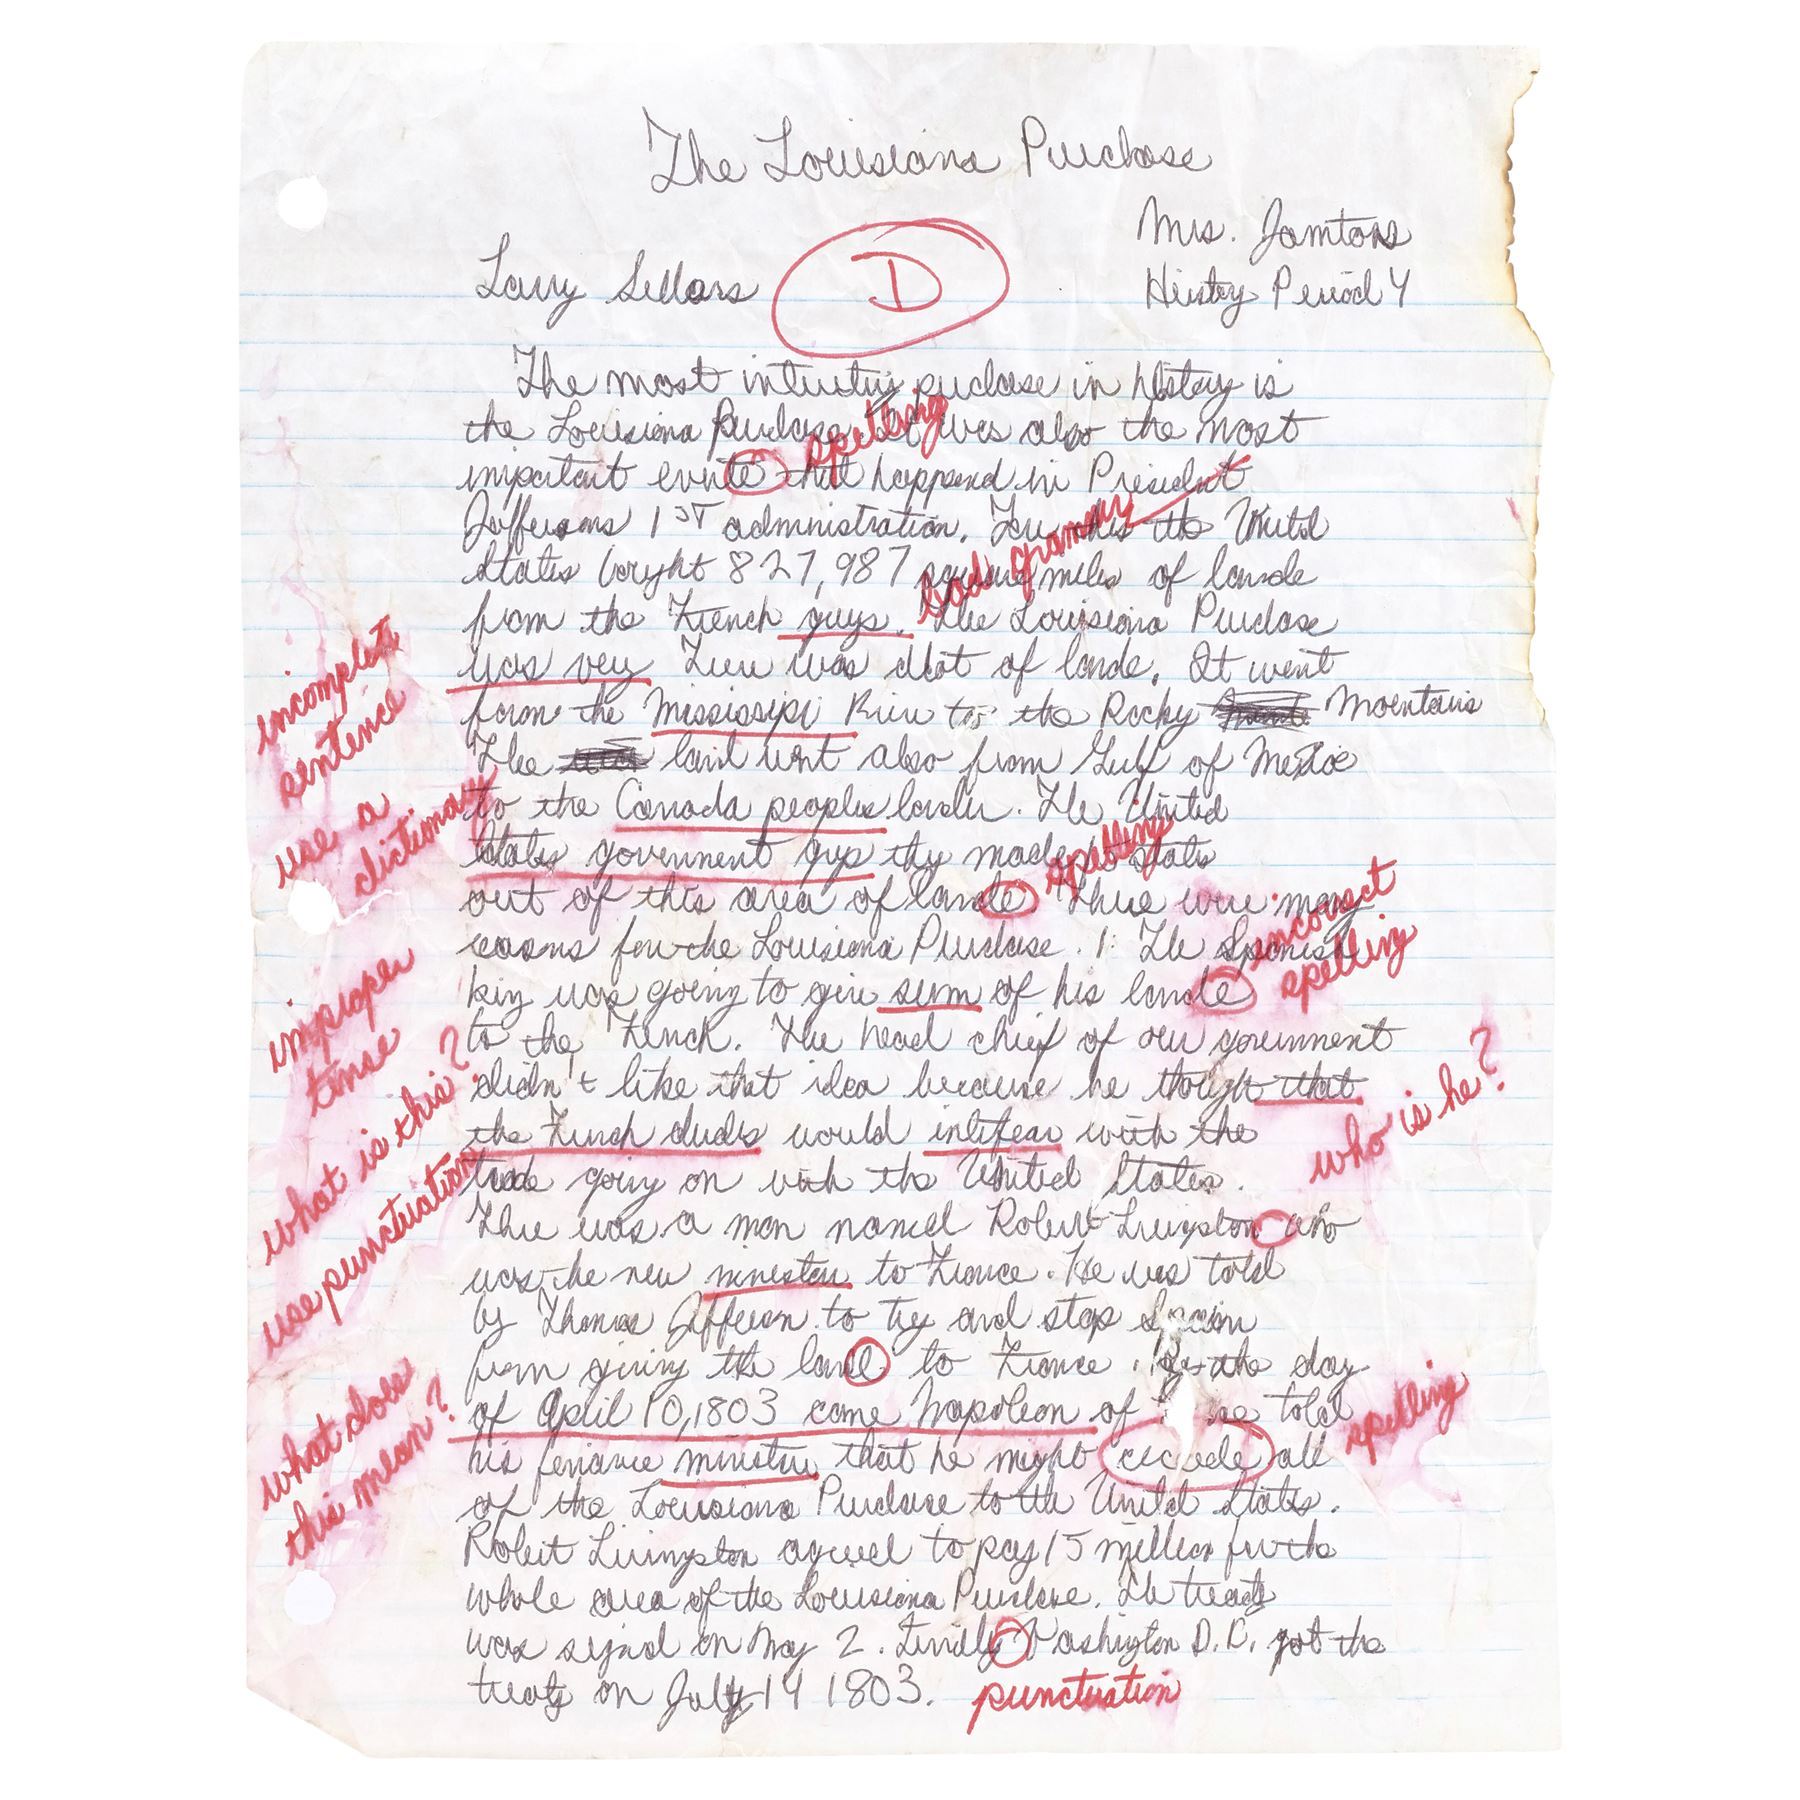 The Louisiana Purchase
Mrs. Jamtoss
Larry Sellars
D
History Period 4
The most purchase in history is
the Louisiana Purchase. It was also the most
spelling
important evente that happend in President
Jeffersons 1ST administration. the United
bad grammar
States 827,987 square miles of lande
from the French guys. The Louisiana Purchase
was very There was alot of lande. It went
incomplete
sentence
from the Mississipi River to the Rocky Mountains
The land went also from Gulf of Mexico
use a
dictionary
to the Canada peoples border. The United
States government guys they made states
spelling
out of this area of lande There were many
incorrect
spelling
for the Louisiana Purchase. 1. The Spanish
king was going to give sum of his lande
improper
tense
to the French. The head chief of our government
didn't like that idea because he that
who is he?
what is this?
the French dudes would with the
use punctuation
trade going on with the United States.
There was a man named Robert Livingston who
was the new to France. He was told
by Thomas to try and stop Spain
from giving the lande to France. the day
of April 10, 1803 came Napoleon of he told
spelling
what does
this mean?
his that he might all
of the Louisiana Purchase to the United States.
Robert Livingston agreed to pay 15 million for the
whole area of the Louisiana Purchase. The treaty
was on May 2. Washington D.C. got the
treaty on July 14 1803.
punctuation